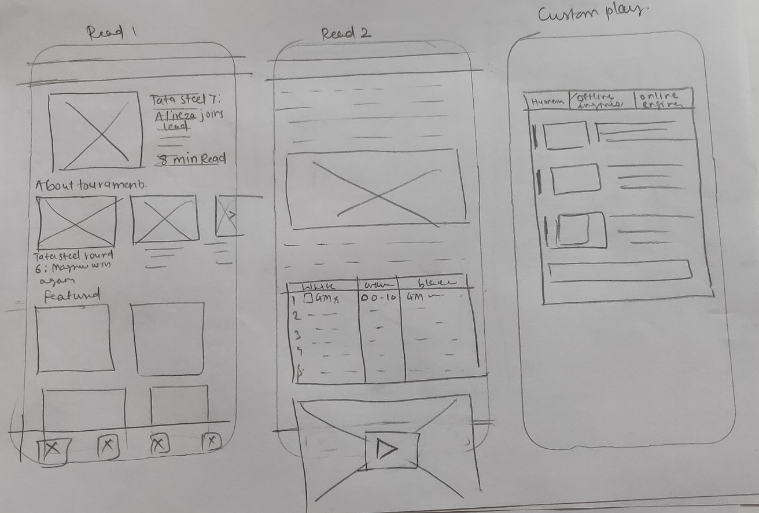 Read 1
Tata steel 7:
Alireza joins
lead
8 min Read
About tournament.
Tata steel round
6: Magnus win
again
Featured
Read 2
White
Black
1 GM
0 0-10 GM
2
3
4
5
Custom play.
Human
offline
engines
online
engine